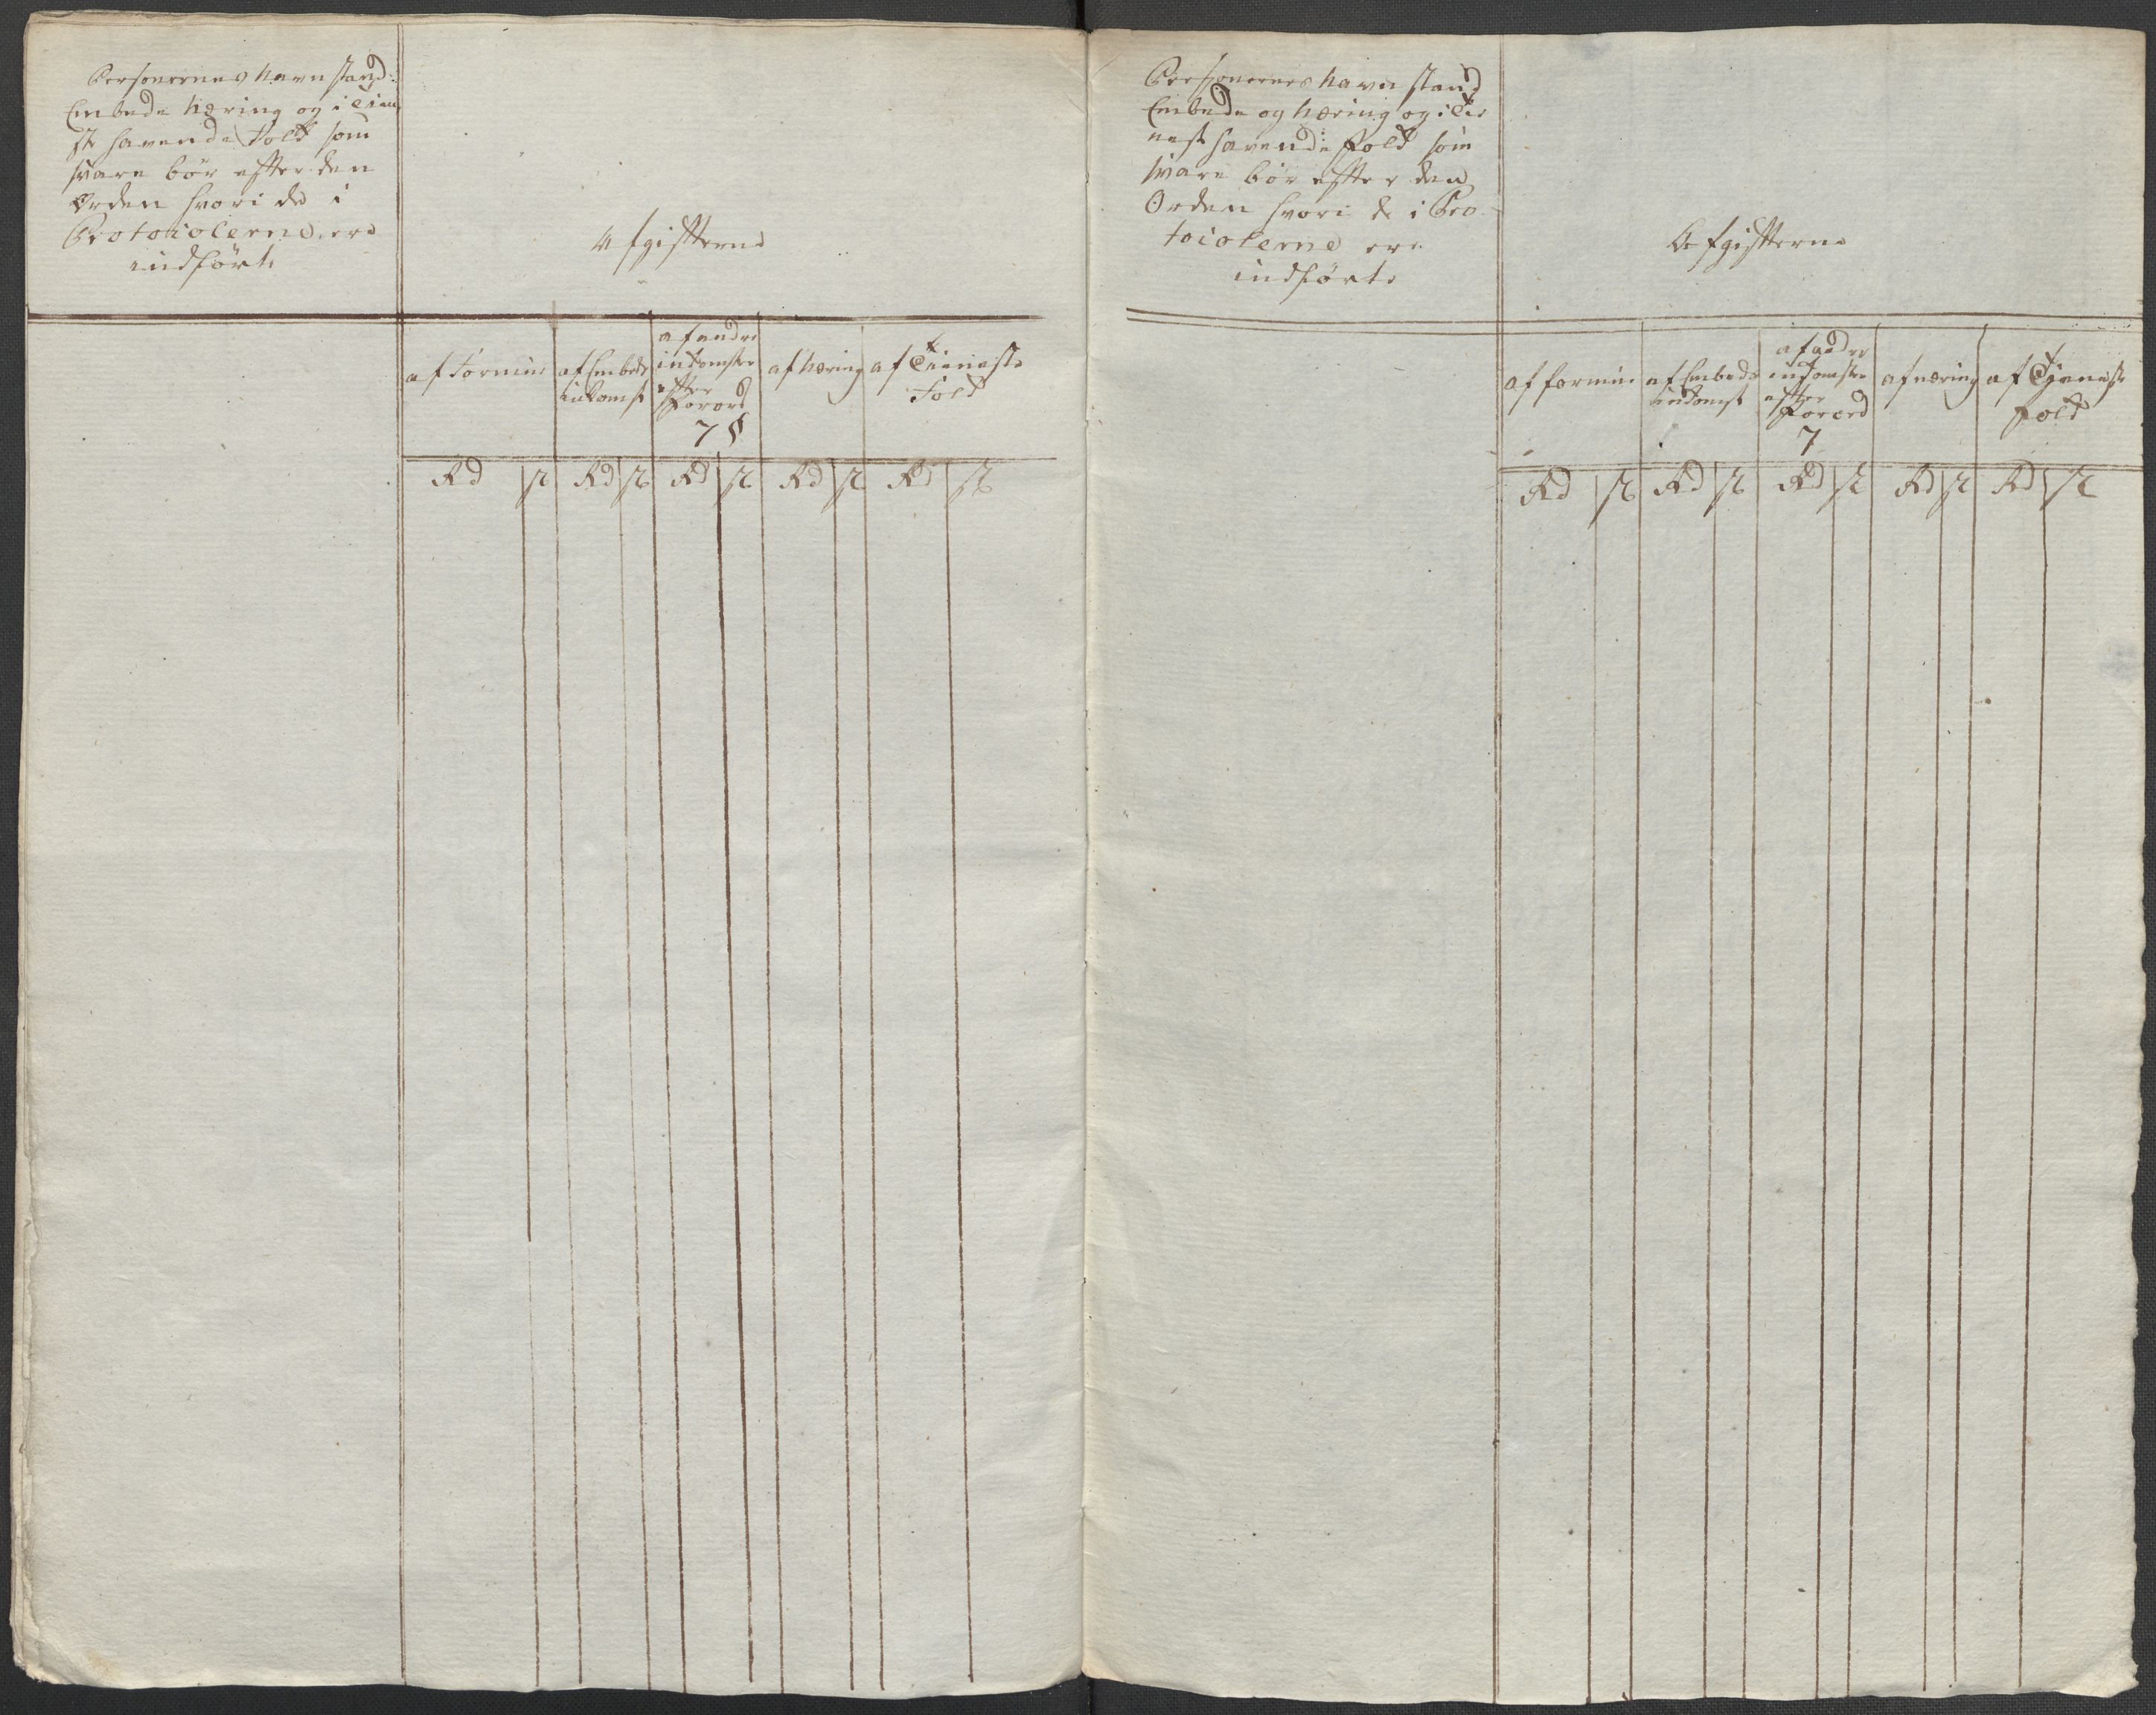 Personernes Navn stand
Embede Næring og i Tien
ste havende Folk som
svare bør efter den
Orden hvori de i
Protocolerne ere
indførte
Afgifterne
af Formue
af Embeds
indkomst
af andre
indkomster
efter
Forord
7 §
af Næring
af Tieneste
Folk
Rd ß Rd ß Rd ß Rd ß Rd ß
Personernes Navn stand
Embede og Næring og i Tie
neste havende Folk som
svare bør efter den
Orden hvori de i Pro
tocolerne ere
indførte
Afgifterne
af formue
af Embeds
indkomst
af andre
indkomster
efter
Forord
7
af næring
af Tjeneste
folk
Rd ß Rd ß Rd ß Rd ß Rd ß